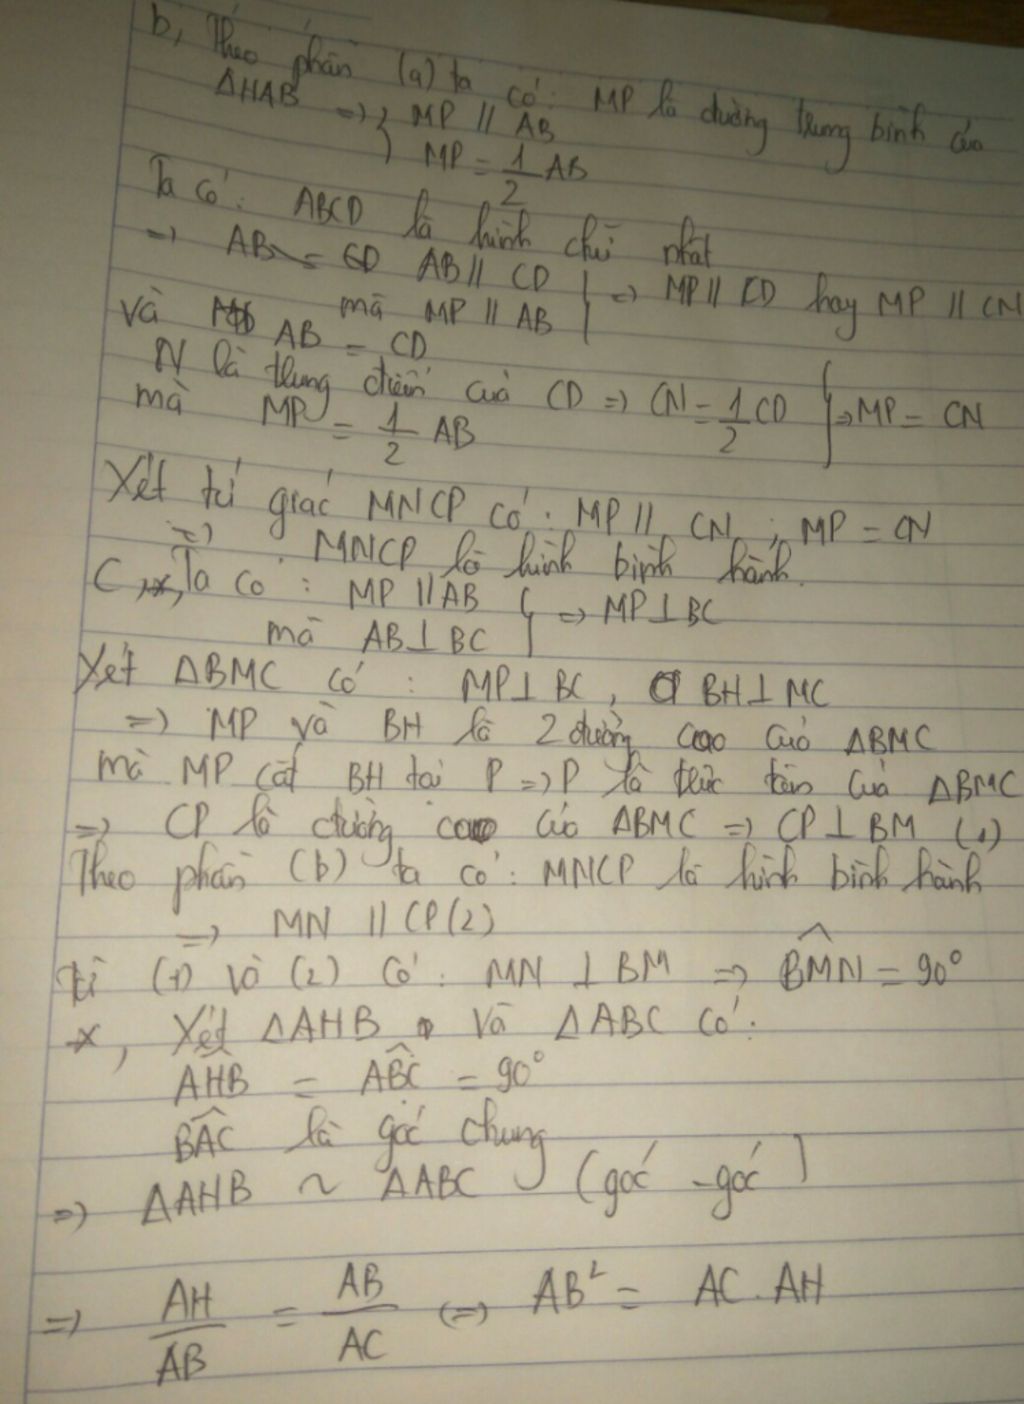 b, Theo phần (a) ta có: MP là đường trung bình của
ΔHAB => { MP // AB
MP = 1/2 AB
Ta có: ABCD là hình chữ nhật
=> AB = CD AB // CD
mà MP // AB } => MP // CD hay MP // CN
và AB = CD
N là trung điểm của CD => CN = 1/2 CD } => MP = CN
mà MP = 1/2 AB
Xét tứ giác MNCP có: MP // CN ; MP = CN
=> MNCP là hình bình hành.
C, *, Ta có: MP // AB } => MP ⊥ BC
mà AB ⊥ BC
Xét ΔBMC có: MP ⊥ BC, BH ⊥ MC
=> MP và BH là 2 đường cao của ΔBMC
mà MP cắt BH tại P => P là trực tâm của ΔBMC
=> CP là đường cao của ΔBMC => CP ⊥ BM (1)
Theo phần (b) ta có: MNCP là hình bình hành
=> MN // CP (2)
từ (1) và (2) có: MN ⊥ BM => BMN̂ = 90°
*, Xét ΔAHB và ΔABC có:
AHB̂ = ABĈ = 90°
BAĈ là góc chung
=> ΔAHB ~ ΔABC (góc - góc)
=> AH/AB = AB/AC <=> AB² = AC . AH